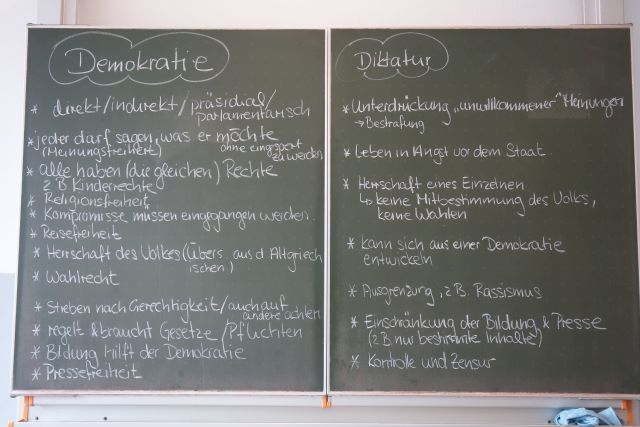 Demokratie
* direkt/indirekt/präsidial/
parlamentarisch
* jeder darf sagen, was er möchte
(Meinungsfreiheit) ohne eingesperrt
zu werden
* alle haben (die gleichen) Rechte
z.B. Kinderrechte
* Religionsfreiheit
* Kompromisse müssen eingegangen werden.
* Reisefreiheit
* Herrschaft des Volkes (Übers. aus d Altgriech
ischen)
* Wahlrecht
* Streben nach Gerechtigkeit/auch auf
andere achten
* regelt & braucht Gesetze/Pflichten
* Bildung hilft der Demokratie
* Pressefreiheit
Diktatur
* Unterdrückung „unwillkommener" Meinungen
→ Bestrafung
* Leben in Angst vor dem Staat
* Herrschaft eines Einzelnen
↳ keine Mitbestimmung des Volks,
keine Wahlen
* kann sich aus einer Demokratie
entwickeln
* Ausgrenzung, z.B. Rassismus
* Einschränkung der Bildung & Presse
(z.B nur bestimmte Inhalte)
* Kontrolle und Zensur